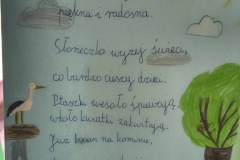 piękna i radosna.
Słoneczko wyżej świeci,
co bardzo cieszy dzieci.
Ptaszki wesoło śpiewają,
wkoło kwiatki zakwitają.
Już bocian na kominie,